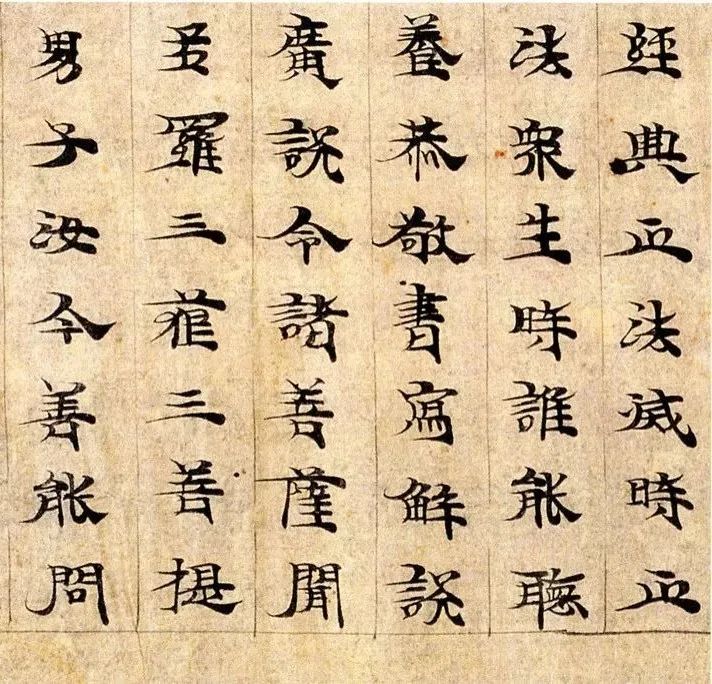 經典正法滅時正
法衆生時誰能聽
養恭敬書寫解説
廣説令諸菩薩聞
多羅三藐三菩提
男子汝今善能問